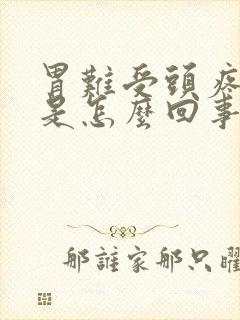 胃難受頭疼
是怎麼回事
那誰家那只曜